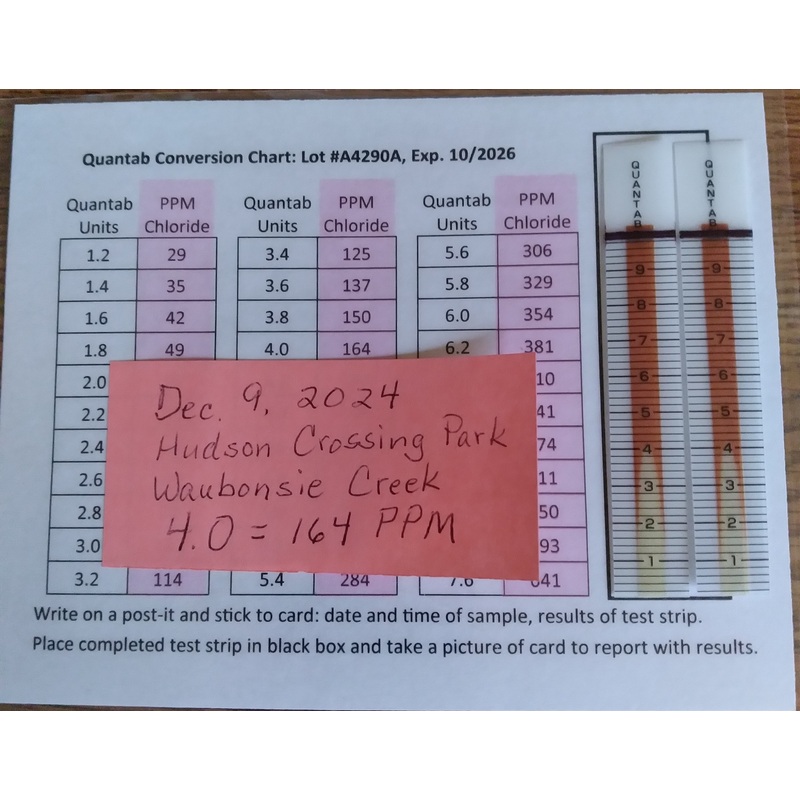 Quantab Conversion Chart: Lot #A4290A, Exp. 10/2026
Quantab Units PPM Chloride Quantab Units PPM Chloride Quantab Units PPM Chloride
1.2 29 3.4 125 5.6 306
1.4 35 3.6 137 5.8 329
1.6 42 3.8 150 6.0 354
1.8 49 4.0 164 6.2 381
2.0 10
2.2 41
2.4 74
2.6 11
2.8 50
3.0 93
3.2 114 5.4 284 7.6 641
Dec. 9, 2024
Hudson Crossing Park
Waubonsie Creek
4.0 = 164 PPM
Write on a post-it and stick to card: date and time of sample, results of test strip.
Place completed test strip in black box and take a picture of card to report with results.
QUANTAB
9
8
7
6
5
4
3
2
1
QUANTAB
9
8
7
6
5
4
3
2
1